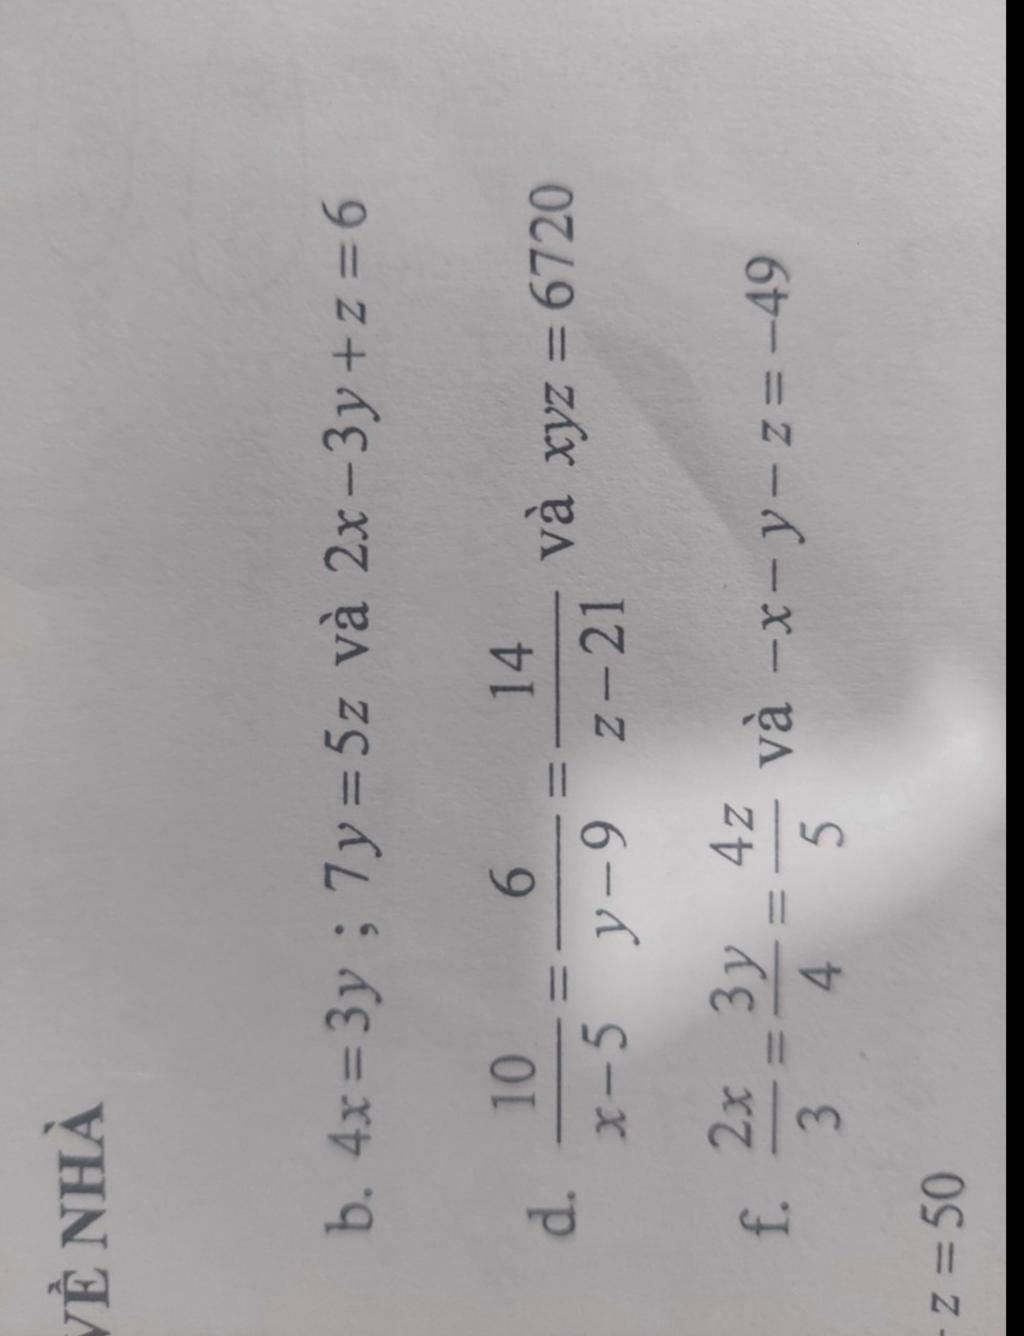 VỀ NHÀ
b. 4x = 3y ; 7y = 5z và 2x − 3y + z = 6
d. 10/(x − 5) = 6/(y − 9) = 14/(z − 21) và xyz = 6720
f. 2x/3 = 3y/4 = 4z/5 và −x − y − z = −49
z = 50